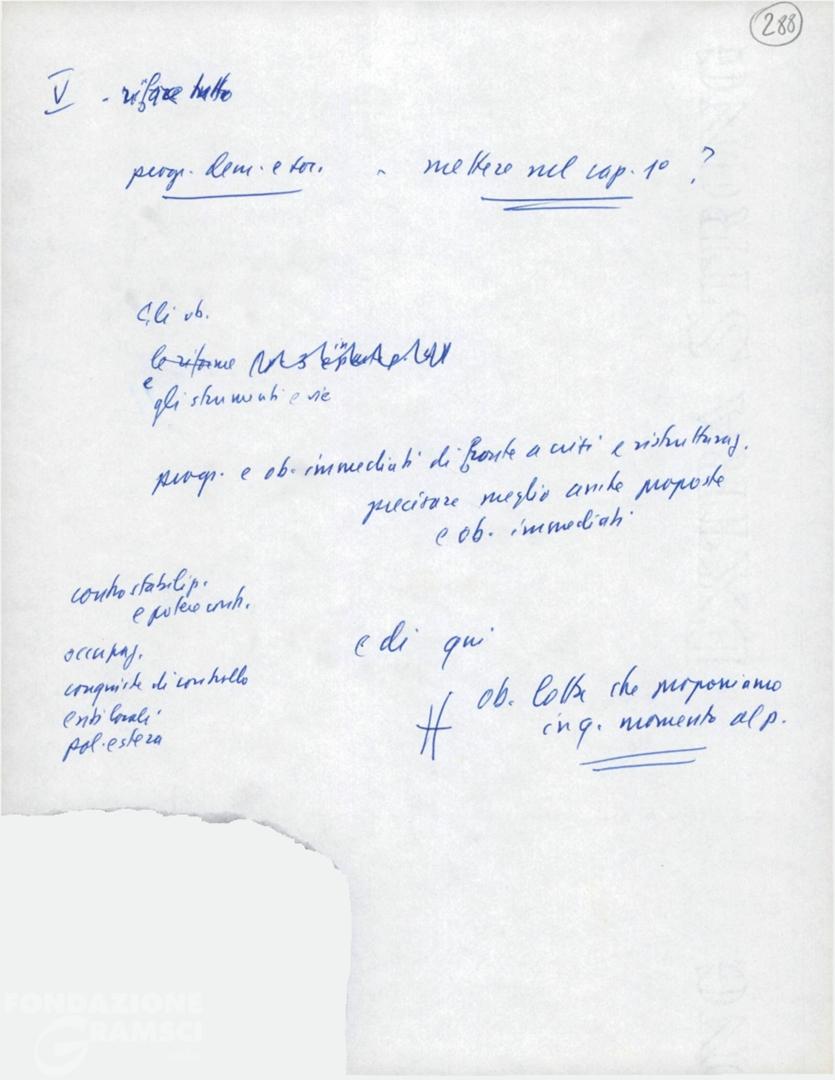 288
V - rifare tutto
progr. dem. e soc. - mettere nel cap. 1º ?
Gli ob.
le riforme
e
gli strumenti e vie
progr. e ob. immediati di fronte a crisi e ristrutturaz.
precisare meglio anche proposte
e ob. immediati
contro stabiliz.
e potere contr.
occupaz.
conquiste di controllo
enti locali
pol. estera
e di qui
# ob. lotta che proponiamo
in q. momento al p.
FONDAZIONE
GRAMSCI